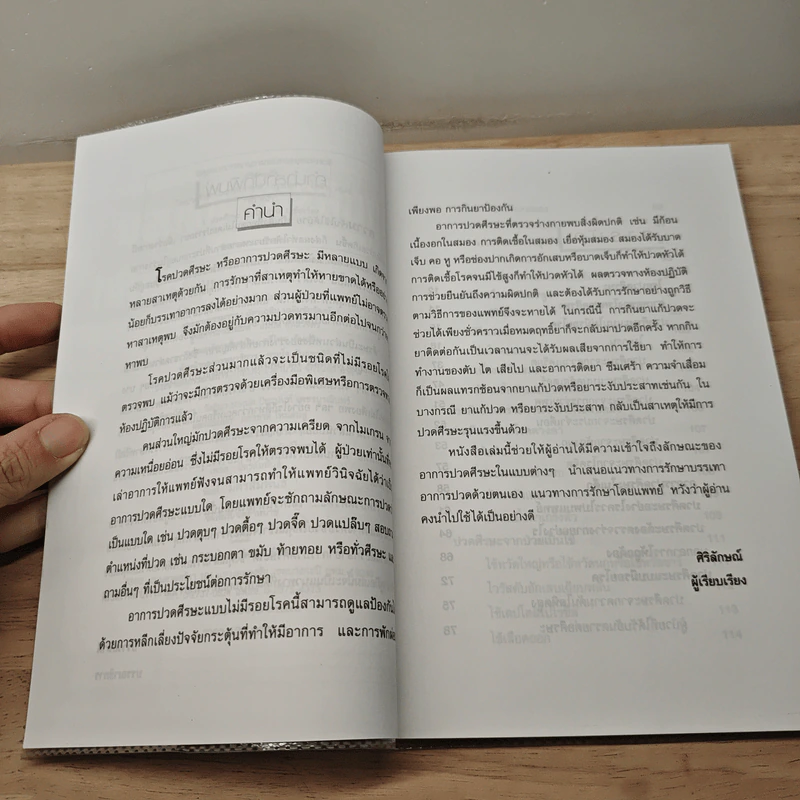 คำนำ
โรคปวดศีรษะ หรืออาการปวดศีรษะ มีหลายแบบ
หลายสาเหตุด้วยกัน การรักษาที่สาเหตุทำให้หายขาดได้
น้อยก็บรรเทาอาการลงได้อย่างมาก ส่วนผู้ป่วยที่แพทย์ไม่อาจ
หาสาเหตุพบ จึงมักต้องอยู่กับความปวดทรมานอีกต่อไปจนกว่า
หาพบ
โรคปวดศีรษะส่วนมากแล้วจะเป็นชนิดที่ไม่มีรอยโรค
ตรวจพบ แม้ว่าจะมีการตรวจด้วยเครื่องมือพิเศษหรือการตรวจ
ห้องปฏิบัติการแล้ว
คนส่วนใหญ่มักปวดศีรษะจากความเครียด จากไมเกรน
ความเหนื่อยอ่อน ซึ่งไม่มีรอยโรคให้ตรวจพบได้ ผู้ป่วยเท่านั้น
เล่าอาการให้แพทย์ฟังจนสามารถทำให้แพทย์วินิจฉัยได้ว่า
อาการปวดศีรษะแบบใด โดยแพทย์จะซักถามลักษณะการปวด
เป็นแบบใด เช่น ปวดตุบๆ ปวดตื้อๆ ปวดจี๊ด ปวดแปล๊บๆ
ตำแหน่งที่ปวด เช่น กระบอกตา ขมับ ท้ายทอย หรือทั่วศีรษะ
ถามอื่นๆ ที่เป็นประโยชน์ต่อการรักษา
อาการปวดศีรษะแบบไม่มีรอยโรคนี้สามารถดูแลป้องกัน
ด้วยการหลีกเลี่ยงปัจจัยกระตุ้นที่ทำให้มีอาการ และการพักผ่อน
เพียงพอ การกินยาป้องกัน
อาการปวดศีรษะที่ตรวจร่างกายพบสิ่งผิดปกติ เช่น มีก้อน
เนื้องอกในสมอง การติดเชื้อในสมอง เยื่อหุ้มสมอง สมองได้รับบาด
เจ็บ คอ หู หรือช่องปากเกิดการอักเสบหรือบาดเจ็บก็ทำให้ปวดหัวได้
การติดเชื้อโรคจนมีไข้สูงก็ทำให้ปวดหัวได้ ผลตรวจทางห้องปฏิบัติ
การช่วยยืนยันถึงความผิดปกติ และต้องได้รับการรักษาอย่างถูกวิธี
ตามวิธีการของแพทย์จึงจะหายได้ ในกรณีนี้ การกินยาแก้ปวดจะ
ช่วยได้เพียงชั่วคราวเมื่อหมดฤทธิ์ยาก็จะกลับมาปวดอีกครั้ง หากกิน
ยาติดต่อกันเป็นเวลานานจะได้รับผลเสียจากการใช้ยา ทำให้การ
ทำงานของตับ ไต เสียไป และอาการติดยา ซึมเศร้า ความจำเสื่อม
ก็เป็นผลแทรกซ้อนจากยาแก้ปวดหรือยาระงับประสาทเช่นกัน ใน
บางกรณี ยาแก้ปวด หรือยาระงับประสาท กลับเป็นสาเหตุให้มีการ
ปวดศีรษะรุนแรงขึ้นด้วย
หนังสือเล่มนี้ช่วยให้ผู้อ่านได้มีความเข้าใจถึงลักษณะของ
อาการปวดศีรษะในแบบต่างๆ นำเสนอแนวทางการรักษาบรรเทา
อาการปวดด้วยตนเอง แนวทางการรักษาโดยแพทย์ หวังว่าผู้อ่าน
คงนำไปใช้ได้เป็นอย่างดี
ศิริลักษณ์
ผู้เรียบเรียง